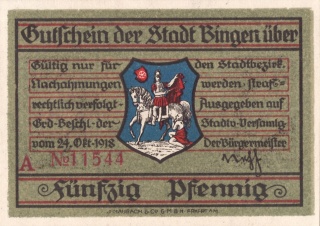 Gutschein der Stadt Bingen über
Gültig nur für den Stadtbezirk.
Nachahmungen werden straf-
rechtlich verfolgt. Ausgegeben auf
Grd-Beschl. der Stadtv-Versamlg.
vom 24. Okt. 1918 Der Bürgermeister
A No 11544
Fünfzig Pfennig